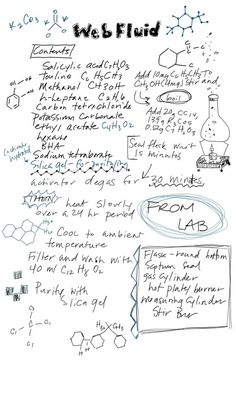 K2CO3
Web Fluid
Contents
Salicylic acid C7H6O3
Touline C6H5CH3
Methanol CH3OH
n-Leptane C7H16
Carbon tetrochloride
Potassium Carbonate
ethyl acetate C4H8O2
hexane
BHA
Sodium tetraborate
Silica gel-for purifying
Add 10mg C6H5CH3 To
CH3OH (4mg) Stir and
boil
Add 22g CCl4
139g K2CO3
0.52g C7H6O3
Seal flask Wait
15 minutes
activator degas for 30 mintes
THEN
heat slowly
over a 24 hr period
Cool to ambient
temperature
Filter and wash with
40 ml C12H8O2
Purify with
Silica gel
FROM
LAB
Flase-round bottom
Septum Seal
gas Cylinder
hot plate/burner
measuring Cylinder
Stir Bar
Cl
C
Cl
Cl
Cl